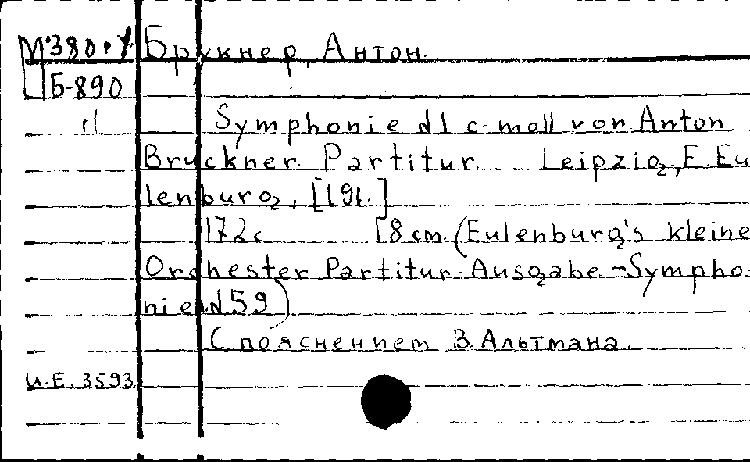 М-380.У Брукнер, Антон.
Б-890
Symphonie №1 c-moll von Anton
Bruckner. Partitur. Leipzig, E. Eu
lenburg, [191.]
172с 18 cm. (Eulenburg's kleine
Orchester Partitur-Ausgabe - Sympho-
nie №59)
С пояснением В. Альтмана.
И.Е. 3593